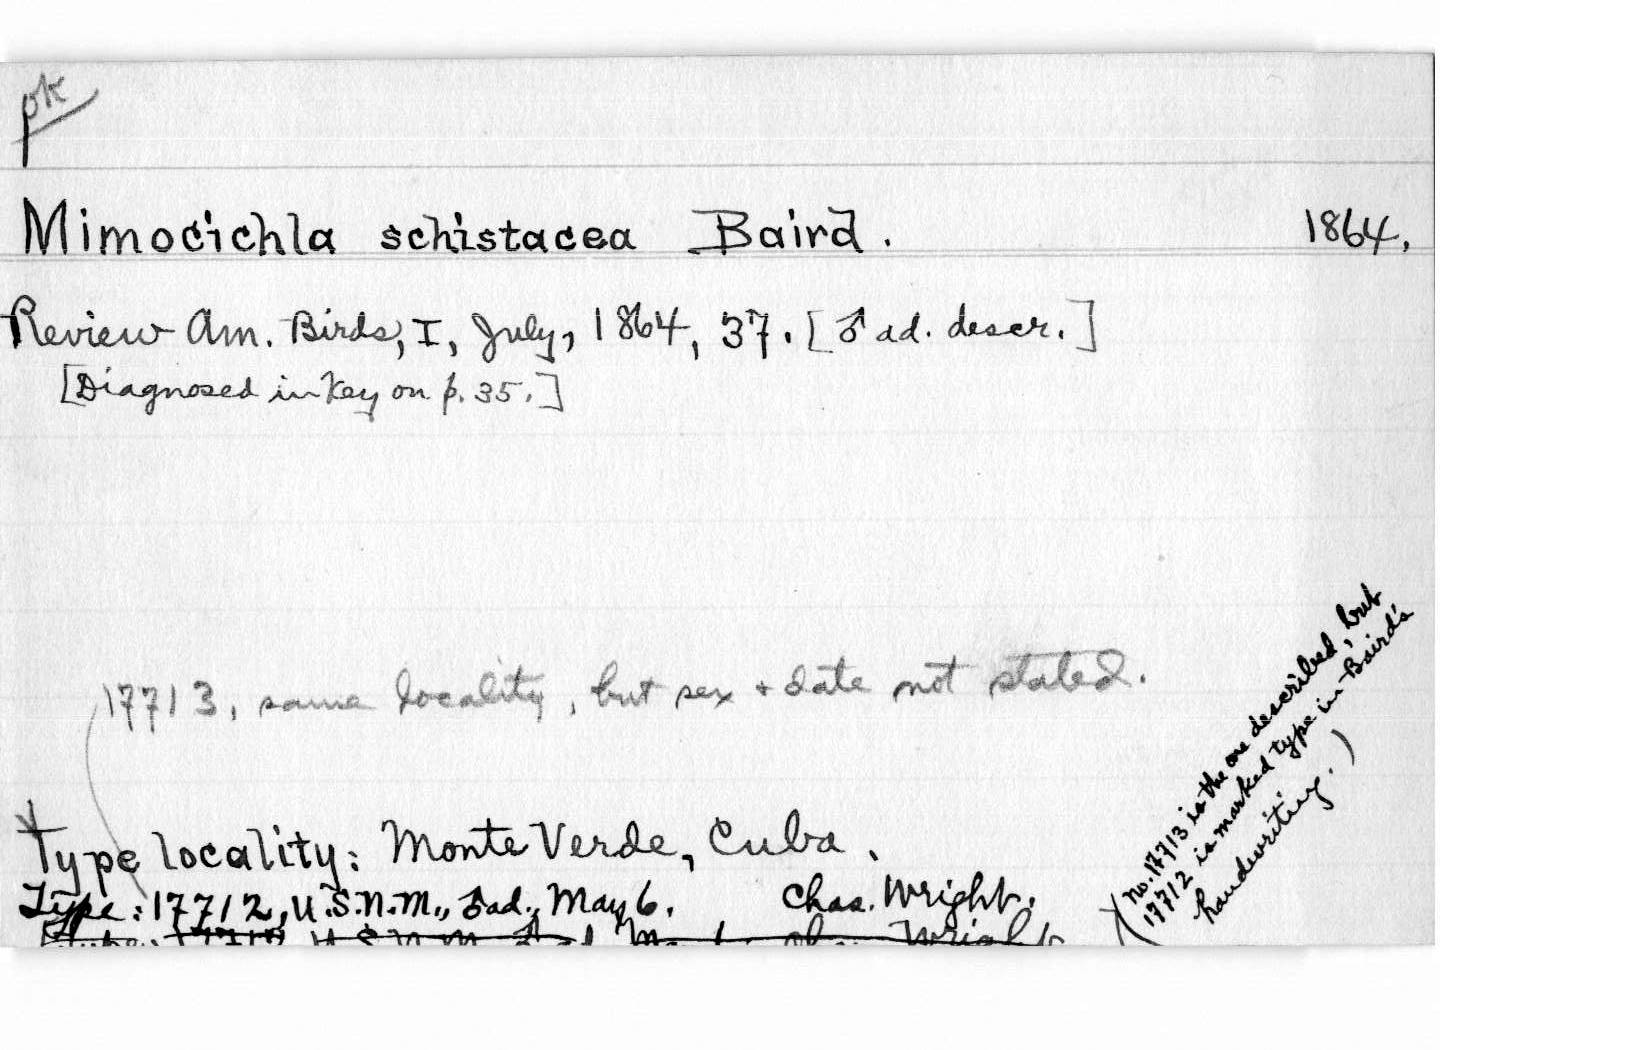 ok
Mimocichla schistacea Baird. 1864.
Review Am. Birds, I, July, 1864, 37. [♂ ad. descr.]
[Diagnosed in Key on p. 35.]
17713, same locality, but sex + date not stated.
Type locality: Monte Verde, Cuba.
Type: 17712, U.S.N.M., ♂ad., May 6. Chas. Wright.
(No. 17713 is the one described, but
17712 is marked type in Baird's
handwriting.)